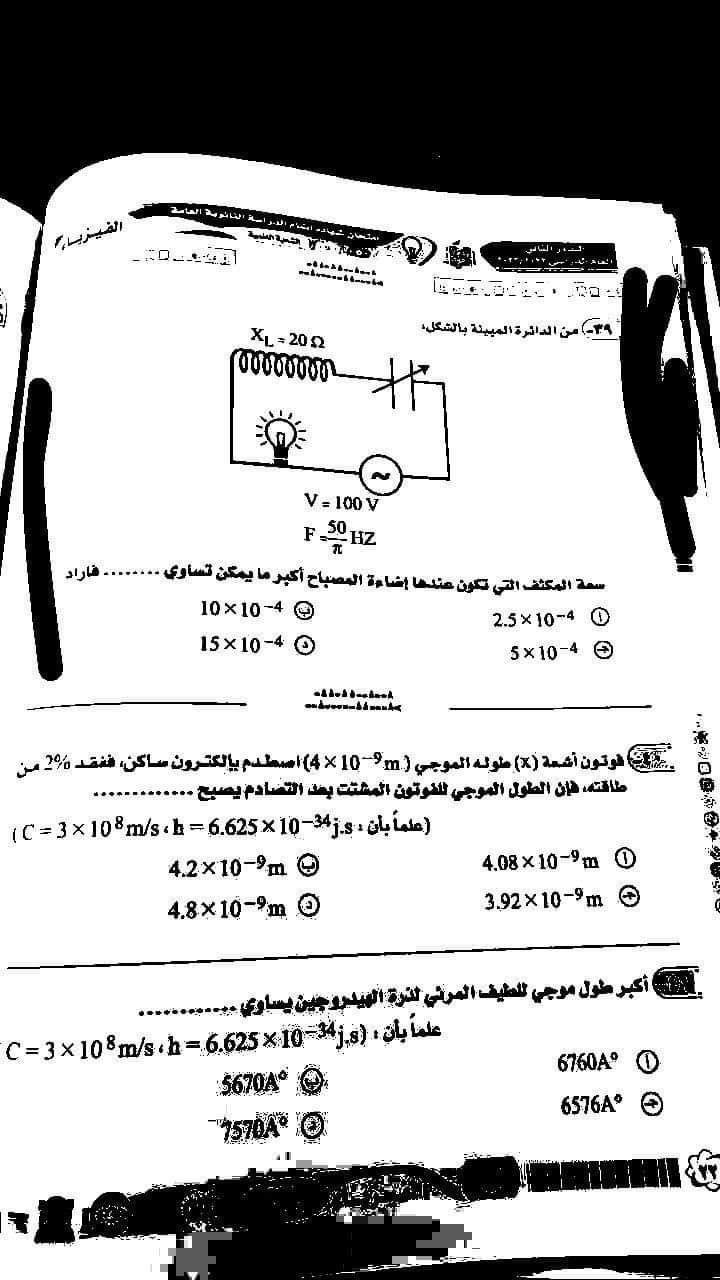 الفيزياء
امتحان شهادة إتمام الدراسة الثانوية العامة
الشعبة العلمية
الدور الثاني
٣٩- من الدائرة المبينة بالشكل،
X_L = 20 Ω
V = 100 V
F = 50/π HZ
سعة المكثف التي تكون عندها إضاءة المصباح أكبر ما يمكن تساوي ........ فاراد
أ 2.5 × 10⁻⁴
ب 10 × 10⁻⁴
ج 5 × 10⁻⁴
د 15 × 10⁻⁴
فوتون أشعة (x) طوله الموجي (4 × 10⁻⁹ m) اصطدم بإلكترون ساكن، ففقد 2% من
طاقته، فإن الطول الموجي للفوتون المشتت بعد التصادم يصبح .............
(علماً بأن : C = 3 × 10⁸ m/s ، h = 6.625 × 10⁻³⁴ j.s)
أ 4.08 × 10⁻⁹ m
ب 4.2 × 10⁻⁹ m
ج 3.92 × 10⁻⁹ m
د 4.8 × 10⁻⁹ m
أكبر طول موجي للطيف المرئي لذرة الهيدروجين يساوي ............
علماً بأن : (C = 3 × 10⁸ m/s ، h = 6.625 × 10⁻³⁴ j.s)
أ 6760A°
ب 5670A°
ج 6576A°
د 7570A°
٧٧